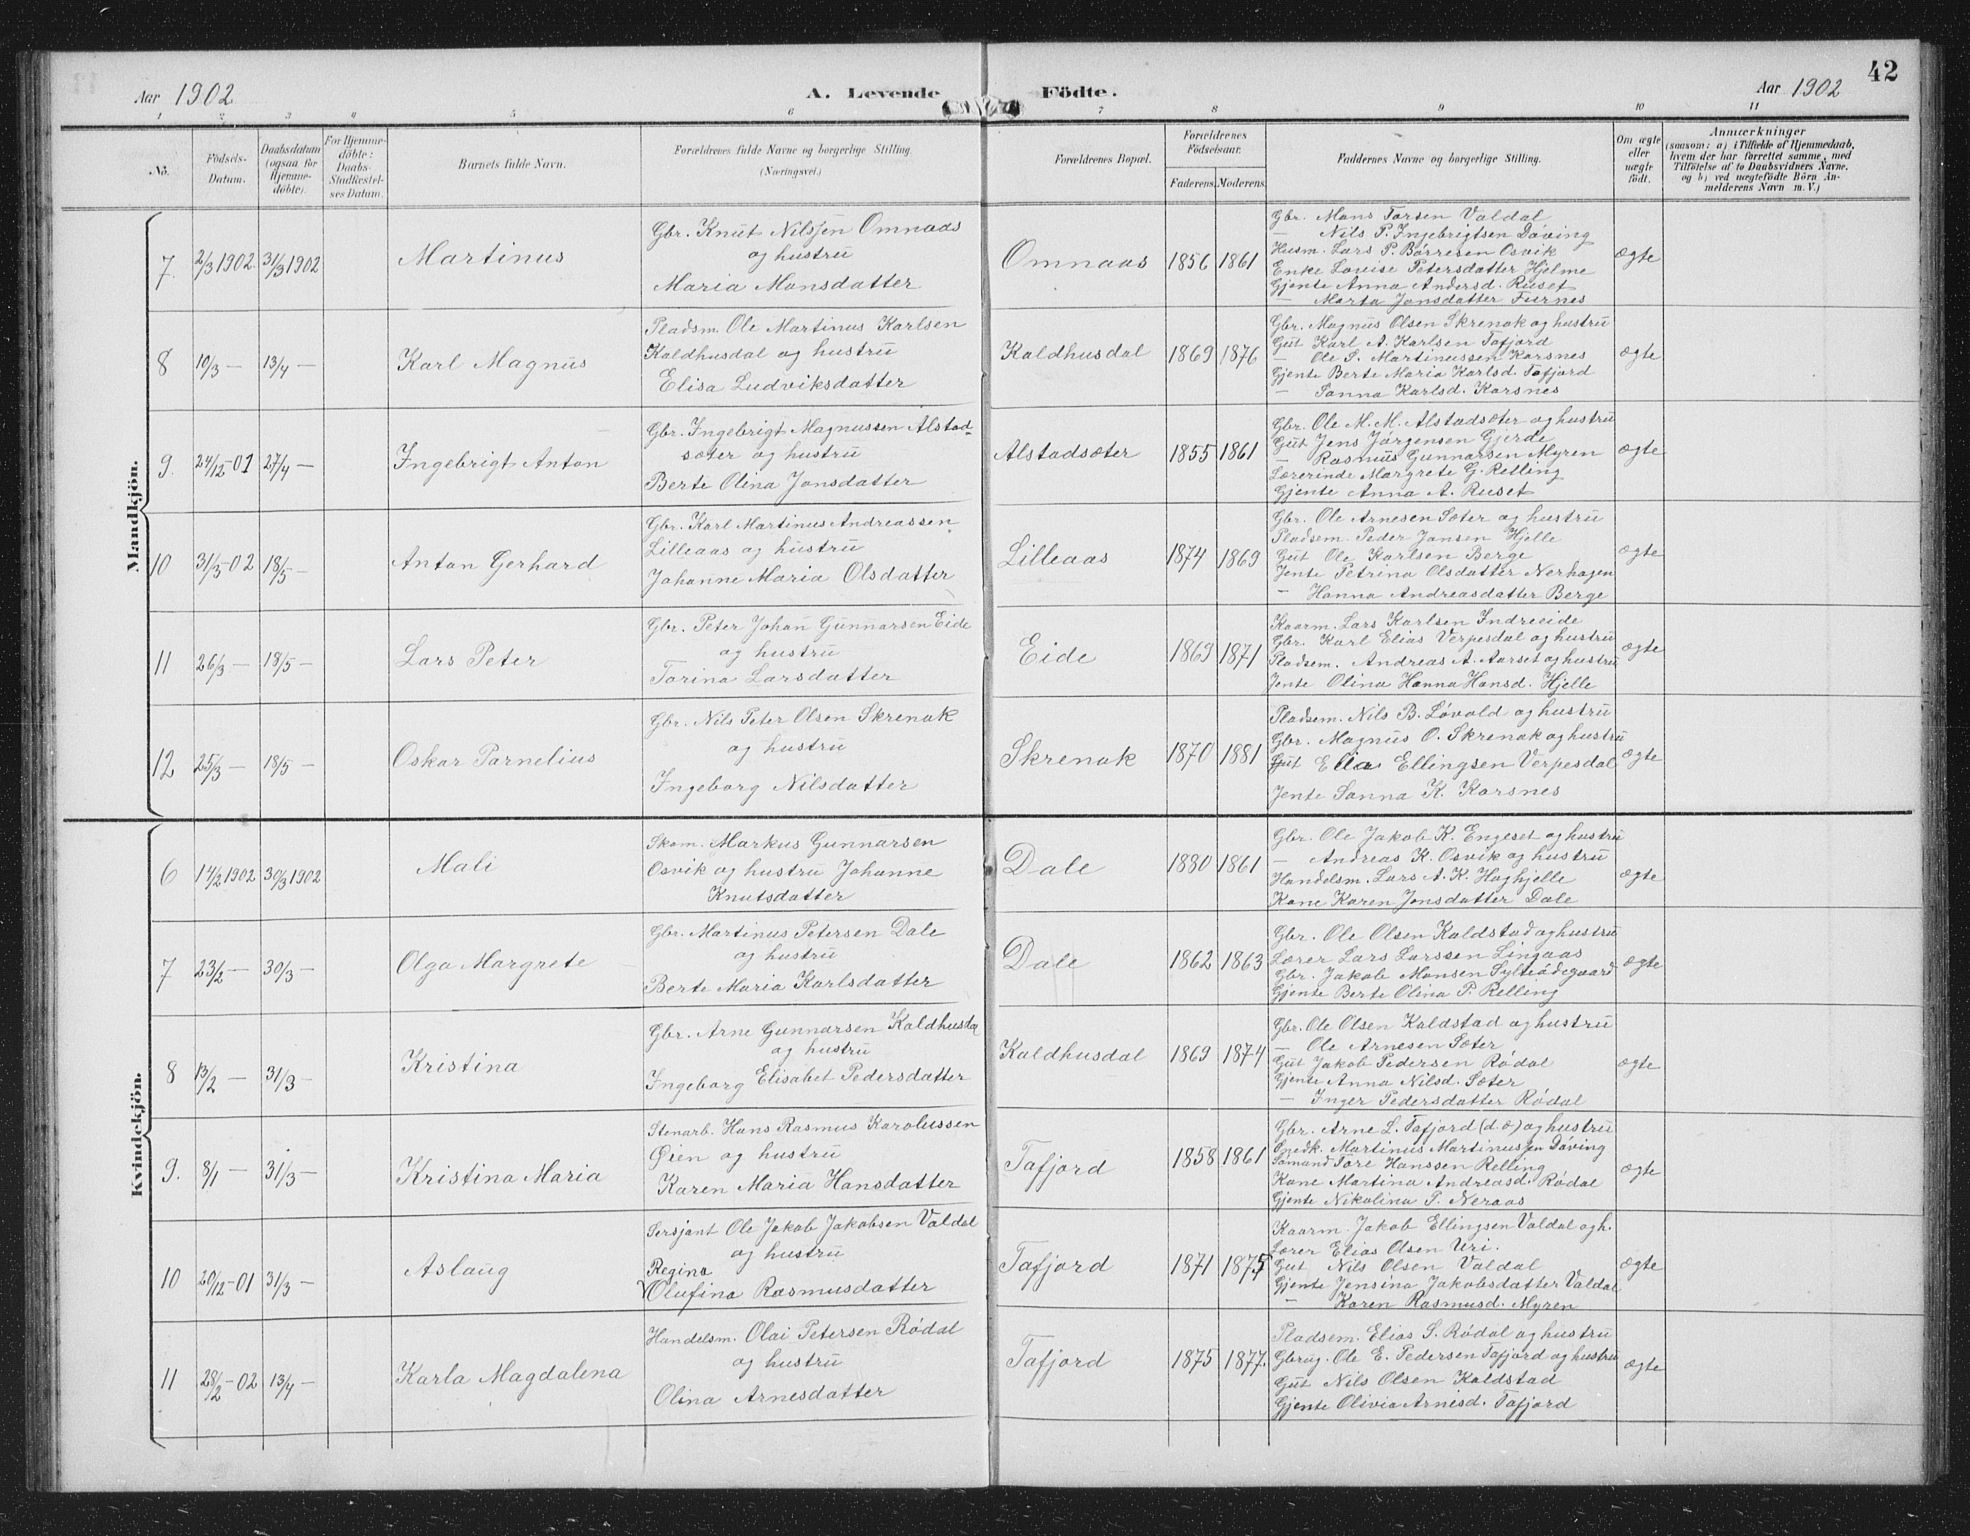 42
Aar 1902
A. Levende
Födte.
Aar 1902
1 2 3 4 5 6 7 8 9 10 11
No.
Födsels-Datum.
Daabsdatum (ogsaa for Hjemme-döbte).
For Hjemme-döbte: Daabs-Stadfæstel-ses Datum.
Barnets fulde Navn.
Forældrenes fulde Navne og borgerlige Stilling.
(Næringsvei.)
Forældrenes Bopæl.
Forældrenes Födselsaar.
Faderens. Moderens.
Faddernes Navne og borgerlige Stilling.
Om ægte eller uægte födt.
Anmærkninger
(saasom: a) i Tilfælde af Hjemmedaab,
hvem der har forrettet samme, med
Tilföielse af to Daabsvidners Navne.
og b) ved uægtefödte Börn An-
melderens Navn m. V.)
Mandkjön.
7. 2/3 1902. 31/3 1902 Martinus
Gbr. Knut Nilsjen Omnaas
og hustru
Maria Monsdatter
Omnaas 1856 1861
Gbr. Mons Torsen Valdal
— Nils P. Ingebrigtsen Döving
Husm. Lars P. Börresen Osvik
Enke Lovise Petersdatter Hjelme
Gjente Anna Andersd. Ruset
— Marta Jonsdatter Furnes
ægte
8 10/3 — 13/4 — Karl Magnus
Pladsm. Ole Martinus Karlsen
Kaldhusdal og hustru
Elisa Ludviksdatter
Kaldhusdal 1869 1876
Gbr. Magnus Olsen Skrenak og hustru
Gut Karl A. Karlsen Tafjord
— Ole S. Martinussen Korsnes
Gjente Berte Maria Karlsd. Tafjord
— Sanna Karlsd. Korsnes
ægte
9. 24/12-01 27/4 — Ingebrigt Anton
Gbr. Ingebrigt Magnussen Alstad-
sæter og hustru
Berte Olina Jonsdatter
Alstadsæter 1855 1861
Gbr. Ole M. M. Alstadsæter og hustru
Gut Jens Jörgensen Gjerde
— Rasmus Gunnarsen Myren
Lærerinde Margrete G. Relling
Gjente Anna A. Ruset
ægte
10 31/3-02 18/5 — Anton Gerhard
Gbr. Karl Martinus Andreassen
Lilleaas og hustru
Johanne Maria Olsdatter
Lilleaas 1874 1869
Gbr. Ole Arnesen Sæter og hustru
Pladsem. Peder Jonsen Hjelle
Gut Ole Karlsen Berge
Jente Petrina Olsdatter Nerhagen
— Hanna Andreasdatter Berge
ægte
11 26/3 — 18/5 — Lars Peter
Gbr. Peter Johan Gunnarsen Eide
og hustru
Torina Larsdatter
Eide 1869 1871
Kaarm. Lars Karlsen Indreeide
Gbr. Karl Elias Verpesdal og hustru
Pladsem. Andreas A. Aarset og hustru
Jente Olina Hanna Hansd. Hjelle
ægte
12 25/3 — 18/5 — Oskar Parnelius
Gbr. Nils Peter Olsen Skrenak
og hustru
Ingeborg Nilsdatter
Skrenak 1870 1881
Pladsem. Nils B. Lövold og hustru
Gbr. Magnus O. Skrenak og hustru
Gut Ellingsen Verpesdal
Jente Sanna K. Korsnes
ægte
Kvindekjön.
6 14/2 1902 30/3 1902 Mali
Skom. Markus Gunnarsen
Osvik og hustru Johanne
Knutsdatter
Dale 1880 1861
Gbr. Ole Jakob K. Engeset og hustru
— Andreas K. Osvik og hustru
Handelsm. Lars A. K. Høghjelle
Kone Karen Jonsdatter Dale
ægte
7 23/2 — 30/3 — Olga Margrete
Gbr. Martinus Petersen Dale
og hustru
Berte Maria Karlsdatter
Dale 1862 1863
Gbr. Ole Olsen Kaldstad og hustru
Lærer Lars Larssen Lingaas
Gbr. Jakob Monsen Sylteödegaard
Gjente Berte Olina P. Relling
ægte
8 13/2 — 31/3 — Kristina
Gbr. Arne Gunnarsen Kaldhusdal
og hustru
Ingeborg Elisabet Pedersdatter
Kaldhusdal 1869 1874
Gbr. Ole Olsen Kaldstad og hustru
— Ole Arnesen Sæter
Gut Jakob Pedersen Rödal
Gjente Anna Nilsd. Sæter
— Inger Pedersdatter Rödal
ægte
9. 8/1 — 31/3 — Kristina Maria
Stenarb. Hans Rasmus Karolussen
Øien og hustru
Karen Maria Hansdatter
Tafjord 1858 1861
Gbr. Arne L. Tafjord (d.æ) og hustru
Snedk. Martinus Martinussen Döving
Sömand Tore Hanssen Relling
Kone Martina Andreasd. Rödal
Gjente Nikolina P. Neraas
ægte
10 20/12-01 31/3 — Aslaug
Sersjant Ole Jakob Jakobsen Valdal
og hustru
Regina
Olufina Rasmusdatter
Tafjord 1871 1875
Kaarm. Jakob Ellingsen Valdal og h.
Lærer Elias Olsen Uri.
Gut Nils Olsen Valdal
Gjente Jensina Jakobsdatter Valdal
— Karen Rasmusd. Myren
ægte
11 28/2-02 13/4 — Karla Magdalena
Handelsm. Olai Petersen Rödal
og hustru
Olina Arnesdatter
Tafjord 1875 1877.
Pladsem. Elias S. Rödal og hustru
Gbrug. Ole E. Pedersen Tafjord og hustru
Gut Nils Olsen Kaldstad
Gjente Olivia Arnesd. Tafjord
ægte